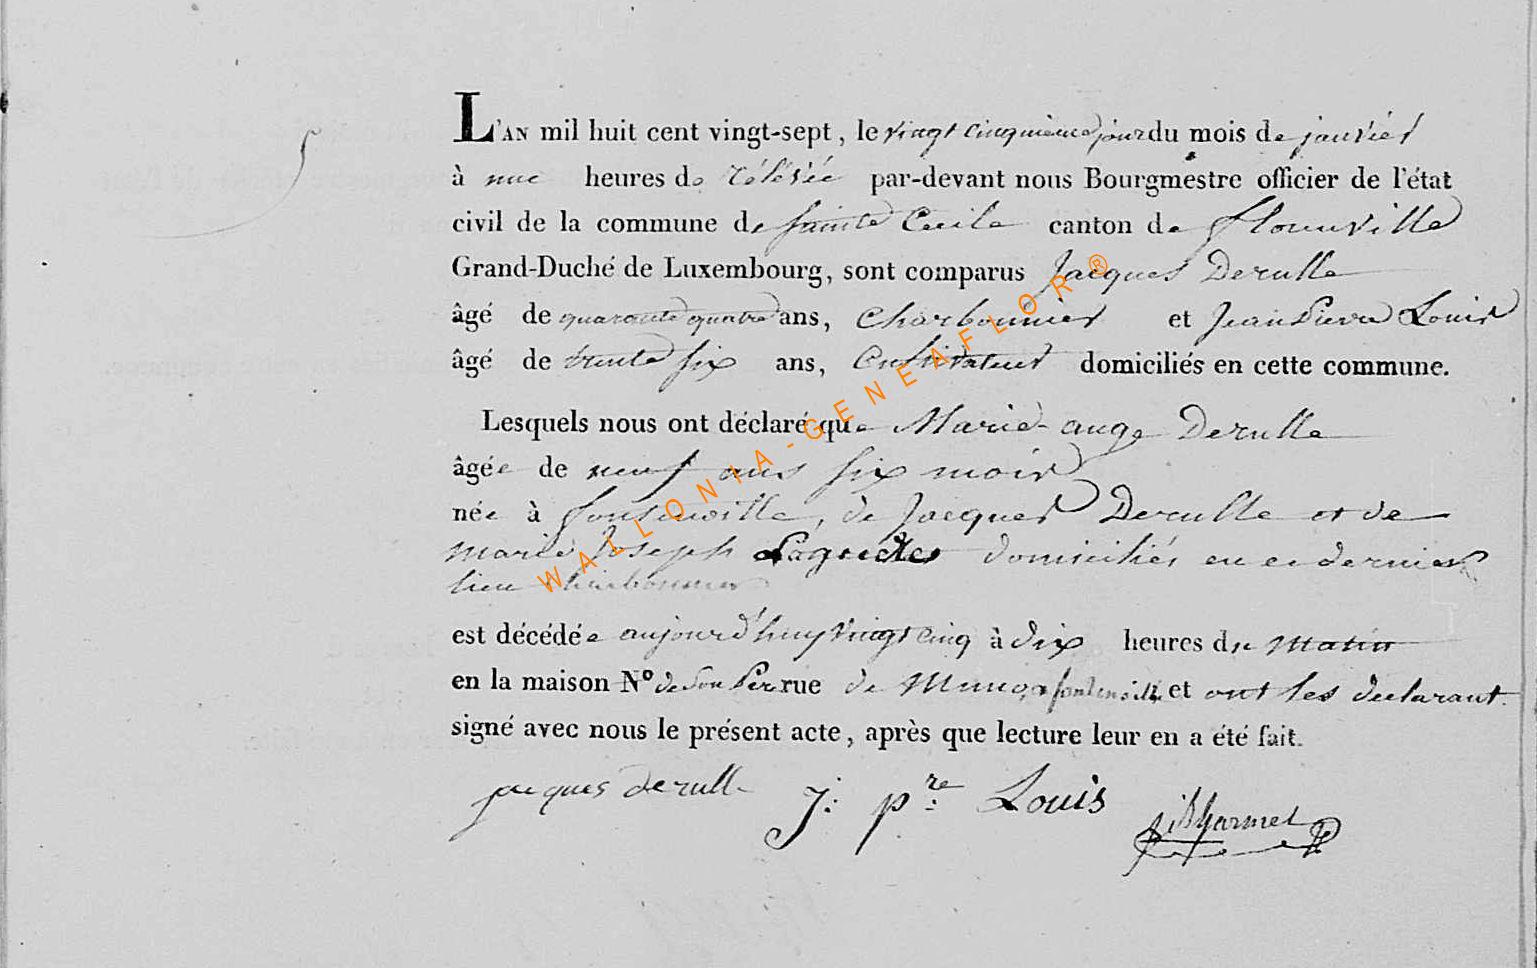 5
L'AN mil huit cent vingt-sept, le vingt cinquieme jour du mois de janvier
à une heures de relevée par-devant nous Bourgmestre officier de l'état
civil de la commune de Sainte Cecile canton de Florenville
Grand-Duché de Luxembourg, sont comparus Jacques Derulle
âgé de quarante quatre ans, Charbonnier et Jean Pierre Louis
âgé de trente six ans, Cultivateur domiciliés en cette commune.
Lesquels nous ont déclaré que Marie-ange Derulle
âgée de neuf ans six mois
née à fontenoille, de Jacques Derulle et de
marie Joseph domiciliés en ce dernier
lieu charbonnier
est décédée aujourd'huy vingt cinq à dix heures du matin
en la maison N° de son Per rue de a fontenoille et ont les declarant
signé avec nous le présent acte, après que lecture leur en a été fait.
jacques derulle J: p:re Louis
WALLONIA-GENEAFLOR®